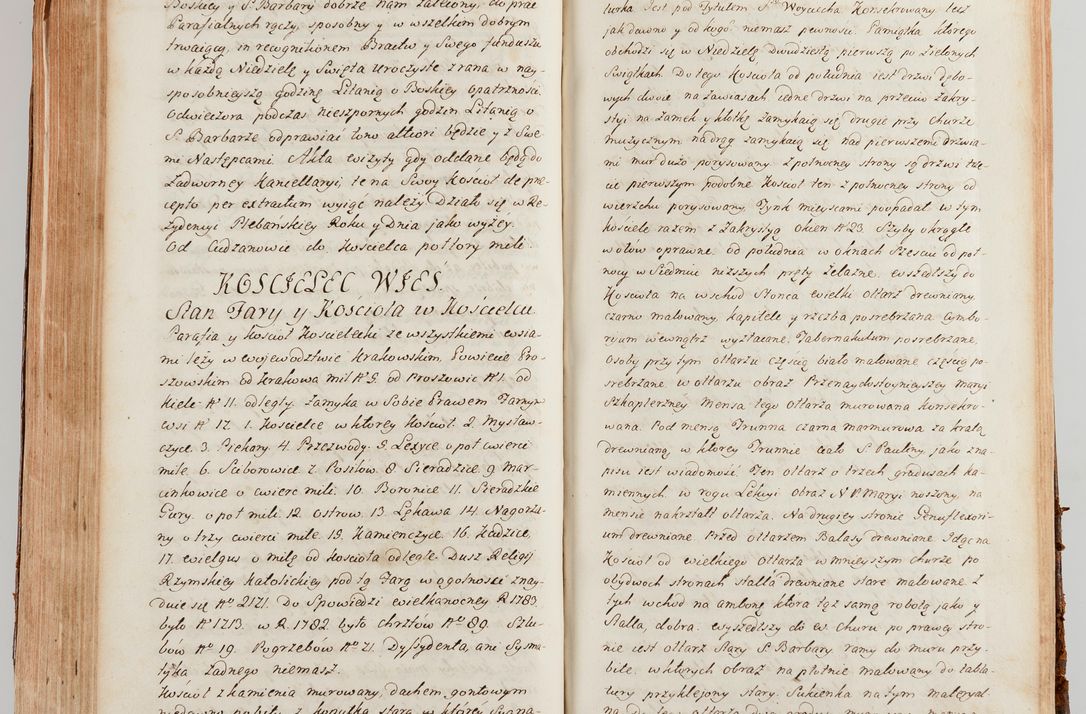 Boskiey y S. Barbary dobrze nam zalecony, do prac
Parafialnych rączy, sposobny y w wszelkim dobrym
trwaiący, in recognitionem Bractw y Swego funduszu
w każdą Niedzielę y Swięta Uroczyste zrana w nay-
sposobnieyszą godzinę Litanią o Boskiey opatrznosci.
Odwieczora podczas nieszpornych godzin Litanią o
S. Barbarze odprawiać tono altiori będzie y z Swe-
mi Następcami. Akta wizyty gdy oddane będą do
Zadworney Kancellaryi, te na Swoy Kościół de prae-
cepto per extractum wyiąć należy. Działo się w Re-
zydencyi Plebańskiey Roku y Dnia jako wyżey.
Od Cudzanowic do Koscielca poltory mili
KOSCIELEC WIEŚ.
Stan Fary y Kościoła w Kościelcu.
Parafia y Kosciół Koscielecki ze wszystkiemi wsia-
mi leży w Woiewodztwie Krakowskim, Powiecie Pro-
szowskim od Krakowa mil No 5. od Proszowic No 1. od
Kielc No 11. odległy. zamyka w Sobie Prawem Farnym
wsi No 17. 1. Koscielec w ktorey Kosciół. 2. Mysław-
czyce. 3. Piekary. 4. Przezwody. 5. Lexyce o pół cwierci
mile. 6. Sciborowice 7. Posiłow. 8 Sieradzice. 9 Mar-
cinkowice o cwierć mili. 10. Boronice 11. Sieradzkie
Gury. o poł mili. 12. Ostrow. 13. Lękawa 14. Nagorza-
ny o trzy cwierci mile 15. Kamienczyce. 16. Kadzice.
17. Wielgus o milę od Kościoła odległe. Dusz Religij
Rzymskiey Katolickiey pod tą Farą w ogolnosci znay-
duie się No 2171. Do Spowiedzi wielkanocney R. 1783.
było No 1713. w R. 1782 było chrztów No 89. Szlu-
bów No 19. Pogrzebów No 71. Dyssydenta, ani Syzma-
tyka żadnego niemasz.
Kosciół z kamienia murowany, dachem gontowym
niedawno pobity, z kopułką starą w ktorey Sygna-
turka. Jest pod Tytułem S. Woyciecha Konsekrowany, lecz
jak dawno y od kogo niemasz pewnosci. Pamiątka ktorego
obchodzi się w Niedzielę Dwudziestą pierwszą po zielonych
Swiątkach. Do tego Kosciola od południa iest drzwi dębo-
wych dwoie na zawiasach iedne drzwi na przeciw zakry-
styi na zamek y klotkę zamykaią się drugie przy Churze
muzycznym na drąg zamykaią się nad pierwszemi drzwia-
mi mur dużo porysowany. z połnocney strony są drzwi trze-
cie pierwszym podobne Kosciół ten z połnocney strony od
wierzchu porysowany. Tynk mieyscami poopadał w tym
kosciele razem z Zakrystyą Okien No 23. Szyby okrągłe
w ołow oprawne. od południa w oknach Szesciu od poł-
nocy w Siedmiu niższych pręty żelazne. wszedłszy do
Koscioła na wschod Słonca wielki ołtarz drewniany,
czarno malowany, kapitele y rzezba posrebrzana. Cymbo-
ryum wewnątrz wyzłacane. Tabernakulum posrebrzane.
Osoby przy tym ołtarzu częscią biało malowane częscią po-
srebrzane, w ołtarzu obraz Przenaydostoynieyszey Maryi
Szkaplerzney. Mensa tego ołtarza murowana konsekro-
wana. Pod mensą Trunna czarna marmurowa za kratą
drewnianą, w ktorey Trunnie ciało S. Pauliny, jako zna-
pisu iest wiadomość. Ten ołtarz o trzech gradusach ka-
miennych. w rogu Lekcyi obraz N. P. Maryi noszony, na
mensie na kształt ołtarza. Na drugiey stronie Genuflexori-
um drewniane. Przed ołtarzem Balasy drewniane. Idąc na
Kosciół od wielkiego ołtarza w mnieyszym churze po
obydwoch stronach stalla drewniane stare malowane. z
tych wchod na ambonę, ktora tąż samą robotą jako y
stalla, dobra. wyszedłszy do w. Churu po prawey stro-
nie iest ołtarz Stary S. Barbary ramy do muru przy-
bite. w ktorych obraz na płótnie malowany do tabla-
tury przyklejony stary. Sukienka na tym materyal-